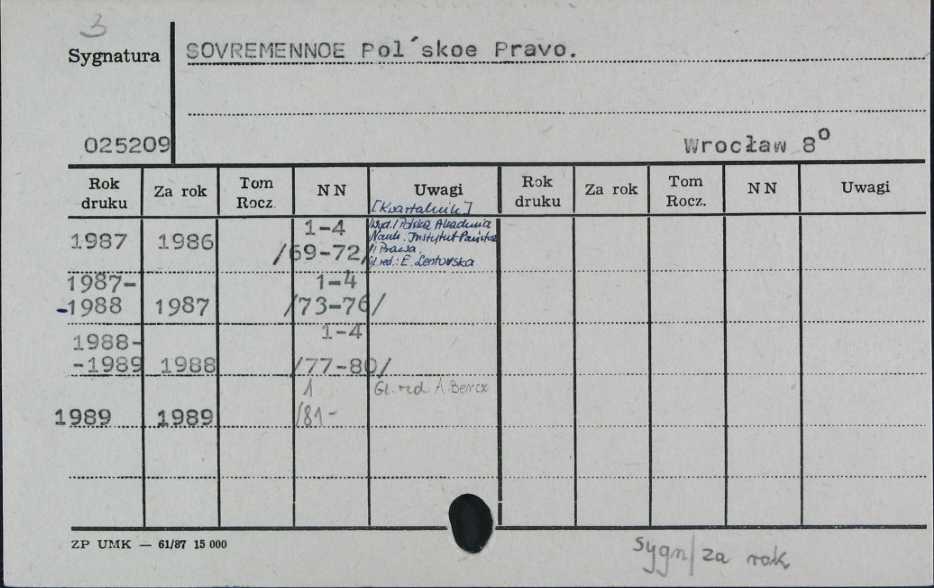 3
Sygnatura
SOVREMENNOE Pol´skoe Pravo.
025209
Wrocław 8°
Rok druku Za rok Tom Rocz. NN Uwagi Rok druku Za rok Tom Rocz. NN Uwagi
[Kwartalnik]
1987 1986 1-4 /69-72/
Wyd.: Polska Akademia
Nauk. Instytut Państwa
i Prawa.
Gł. red.: E. Łentowska
1987-
-1988 1987 1-4 /73-76/
1988-
-1989 1988 1-4 /77-80/
1989 1989 1 /81-
Gł. red A.
ZP UMK — 61/87 15 000
Sygn/za rok